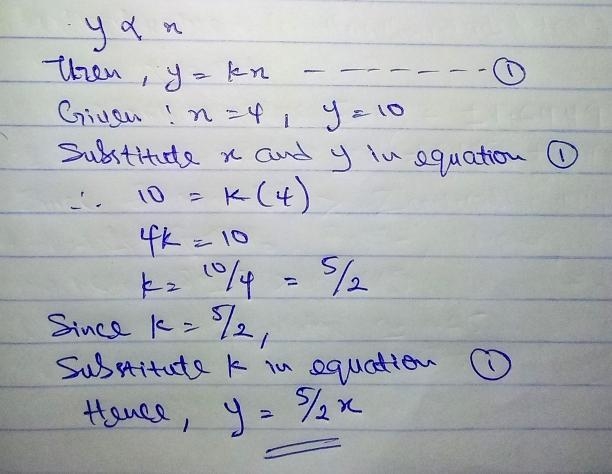 y ∝ x
Then, y = kx ------- ①
Given: x = 4, y = 10
Substitute x and y in equation ①
∴ 10 = k(4)
4k = 10
k = 10/4 = 5/2
Since k = 5/2,
Substitute k in equation ①
Hence, y = 5/2 x